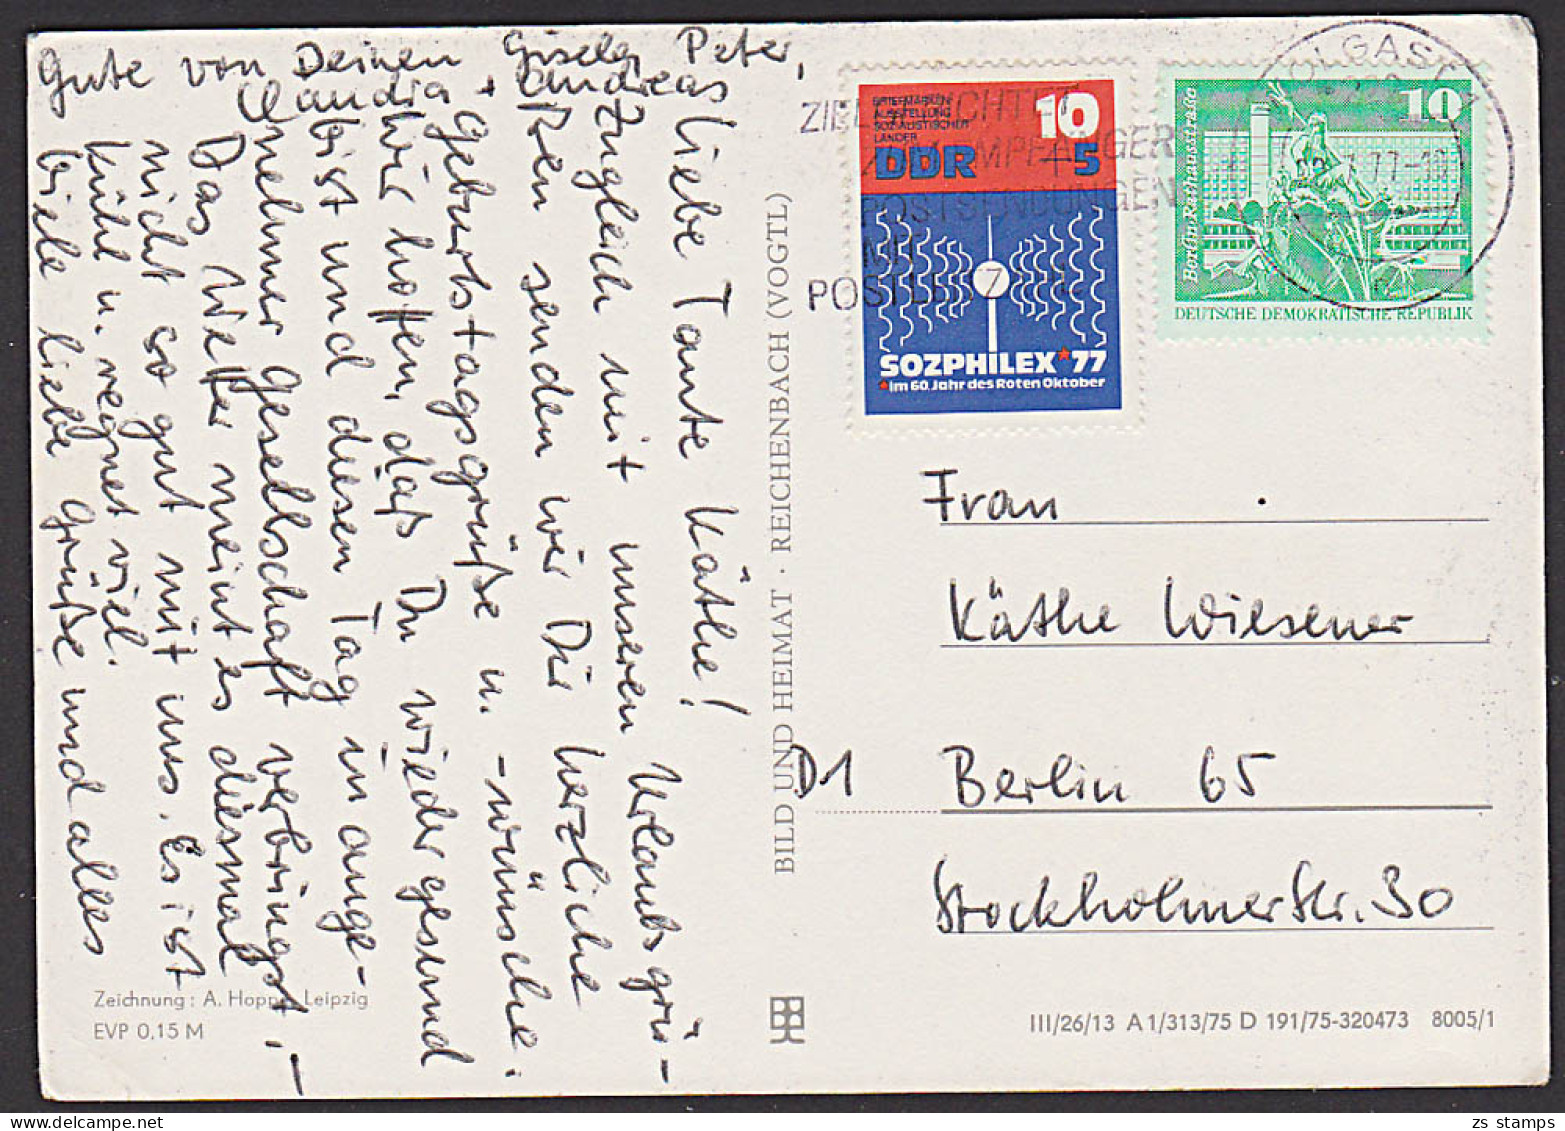 Liebe Tante Käthe!
Zugleich mit unseren Urlaubsgrü-
ßen senden wir Dir herzliche
Geburtstagsgrüße u. -wünsche.
Wir hoffen, daß Du wieder gesund
bist und diesen Tag in ange-
nehmer Gesellschaft verbringst. –
Das Wetter meint es diesmal
nicht so gut mit uns. Es ist
kühl u. regnet viel.
Viele liebe Grüße und alles
Gute von Deinen Gisela, Peter,
Claudia + Andreas
BILD UND HEIMAT · REICHENBACH (VOGTL)
Zeichnung: A. Hoppe, Leipzig
EVP 0,15 M
BRIEFMARKEN-
AUSSTELLUNG
SOZIALISTISCHER
LÄNDER
DDR
10
+5
SOZPHILEX '77
*im 60. Jahr des Roten Oktober
10
Berlin, Rathausstraße
DEUTSCHE DEMOKRATISCHE REPUBLIK
WOLGAST 1
77-18
EMPFÄNGER
POSTSENDUNGEN
Frau
Käthe Wiesener
D1 Berlin 65
Stockholmer Str. 30
III/26/13 A 1/313/75 D 191/75-320473 8005/1
zs stamps